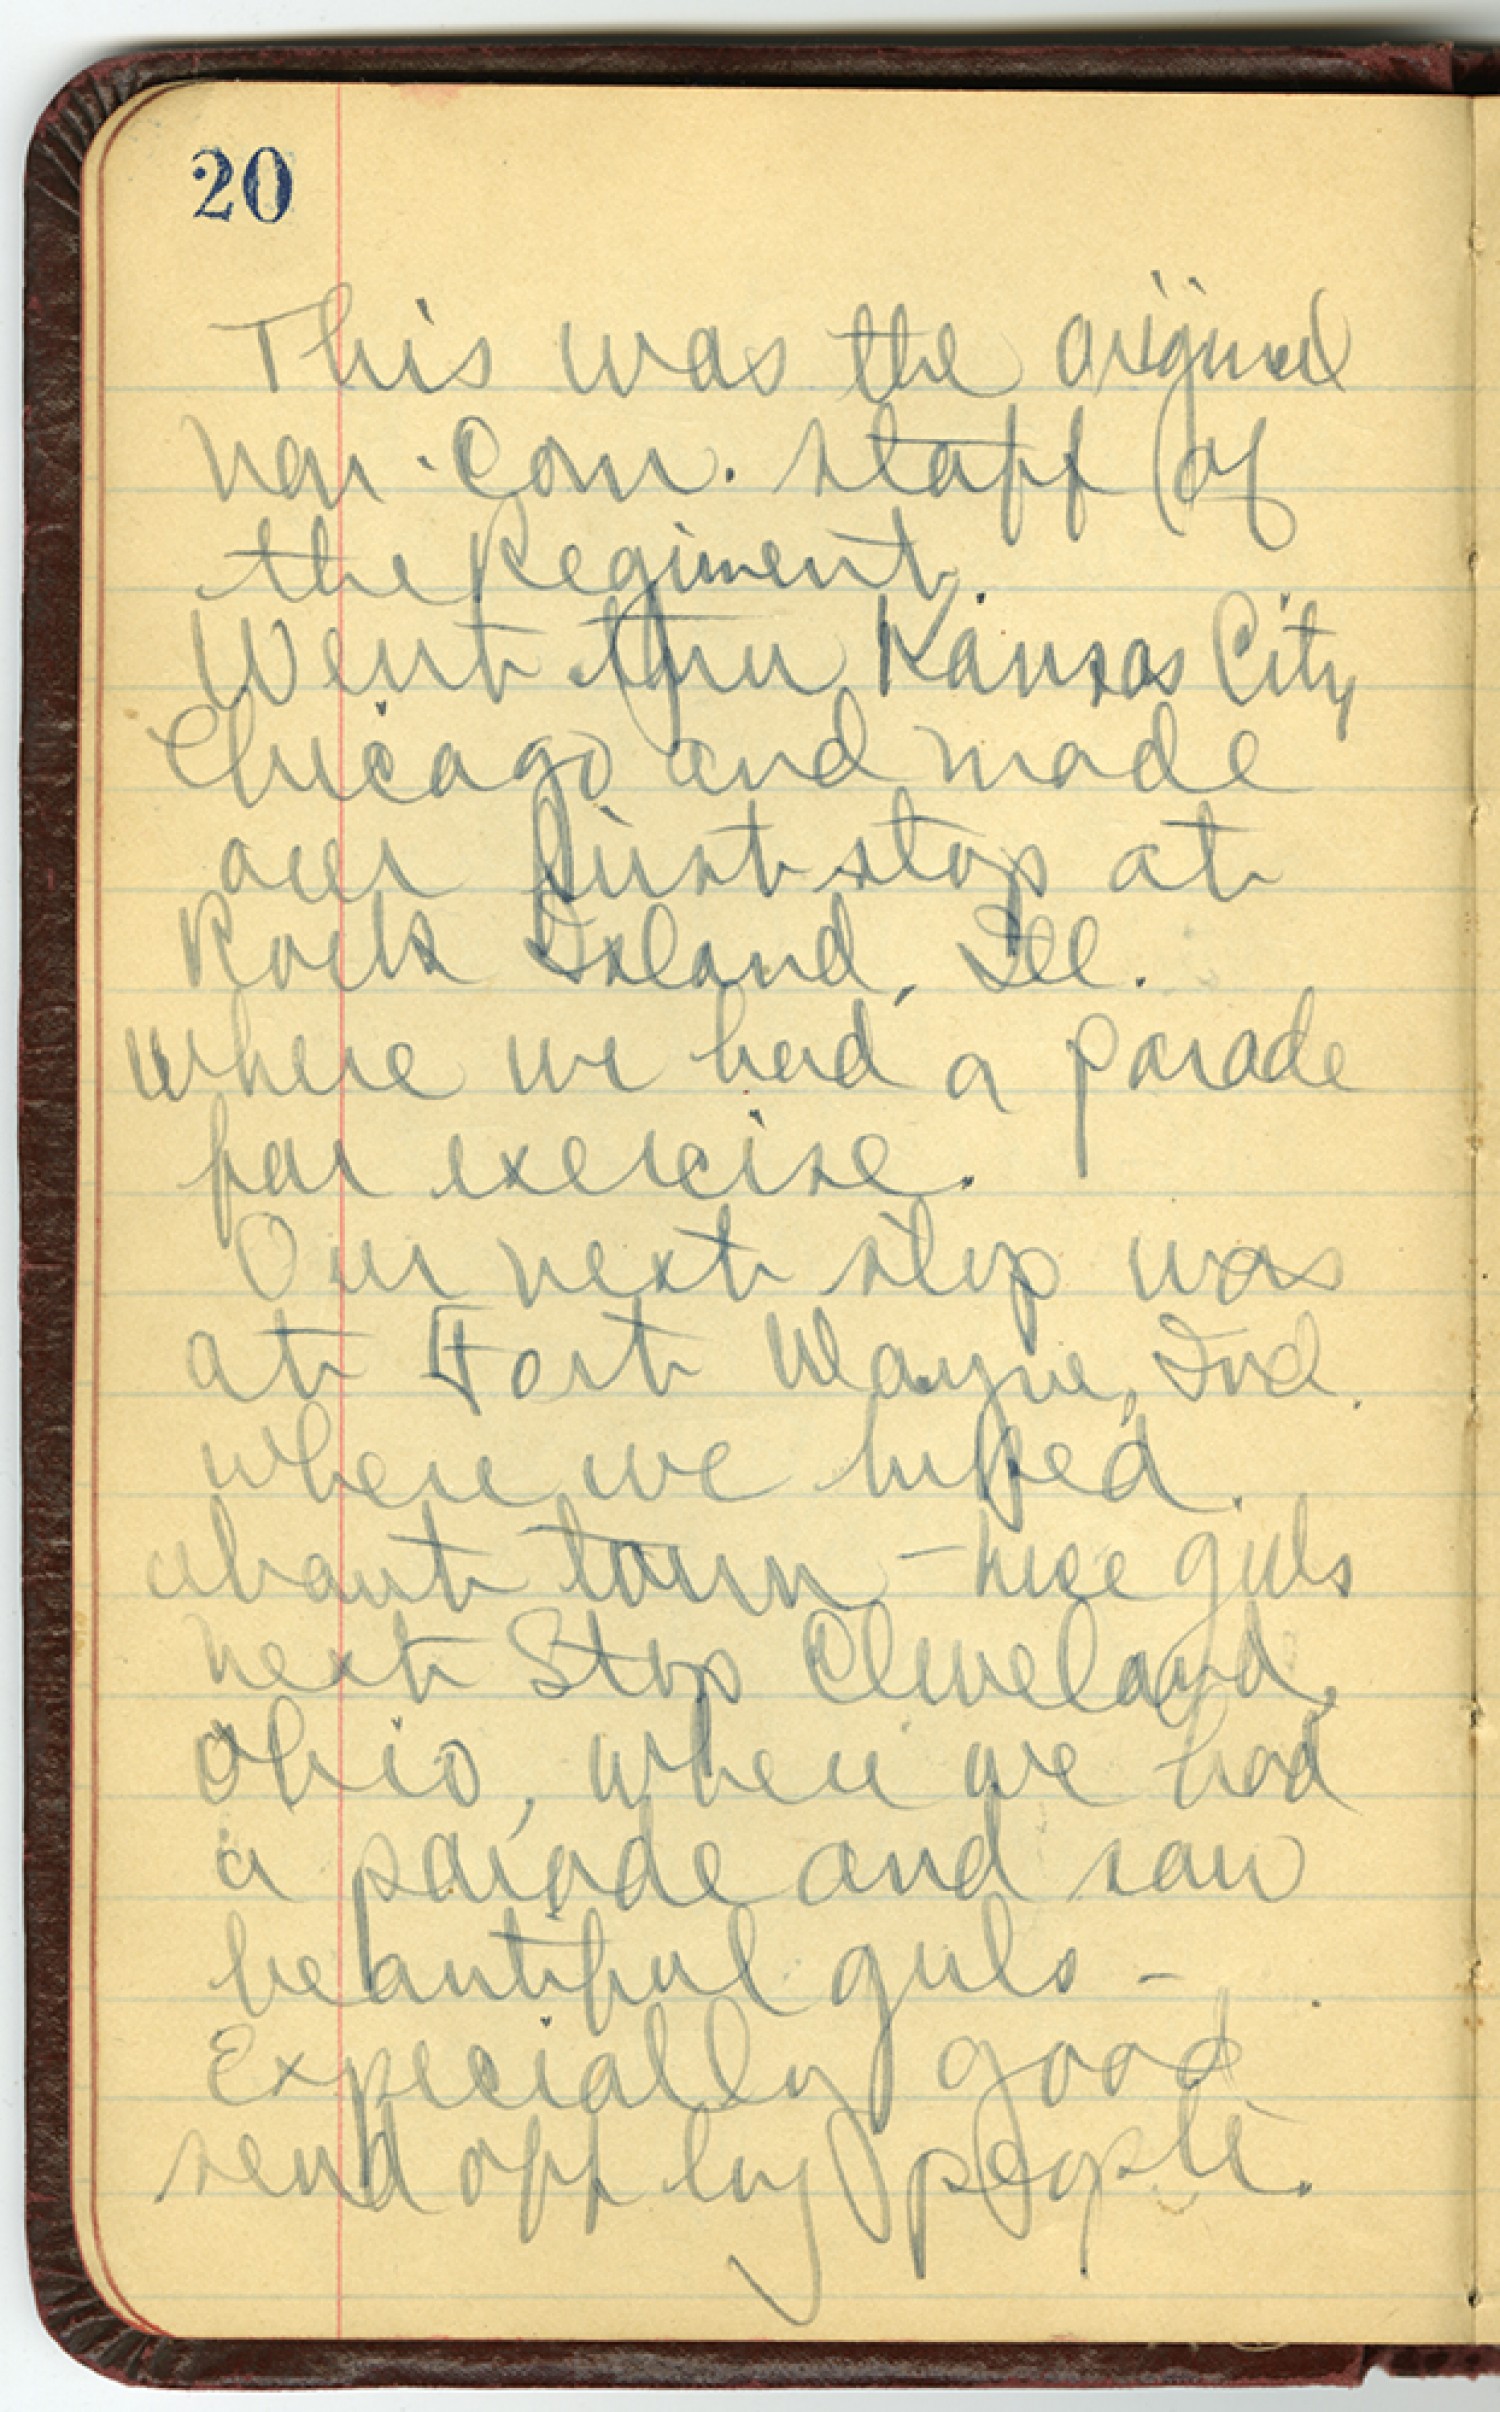 20
This was the original
non-Com. staff of
the Regiment.
Went thru Kansas City,
Chicago and made
our first stop at
Rock Island, Ill.
where we had a parade
for exercise.
Our next stop was
at Fort Wayne, Ind.
where we hiked
about town - nice girls
next Stop Cleveland,
Ohio, where we had
a parade and saw
beautiful girls -
Expecially good
send off by people.